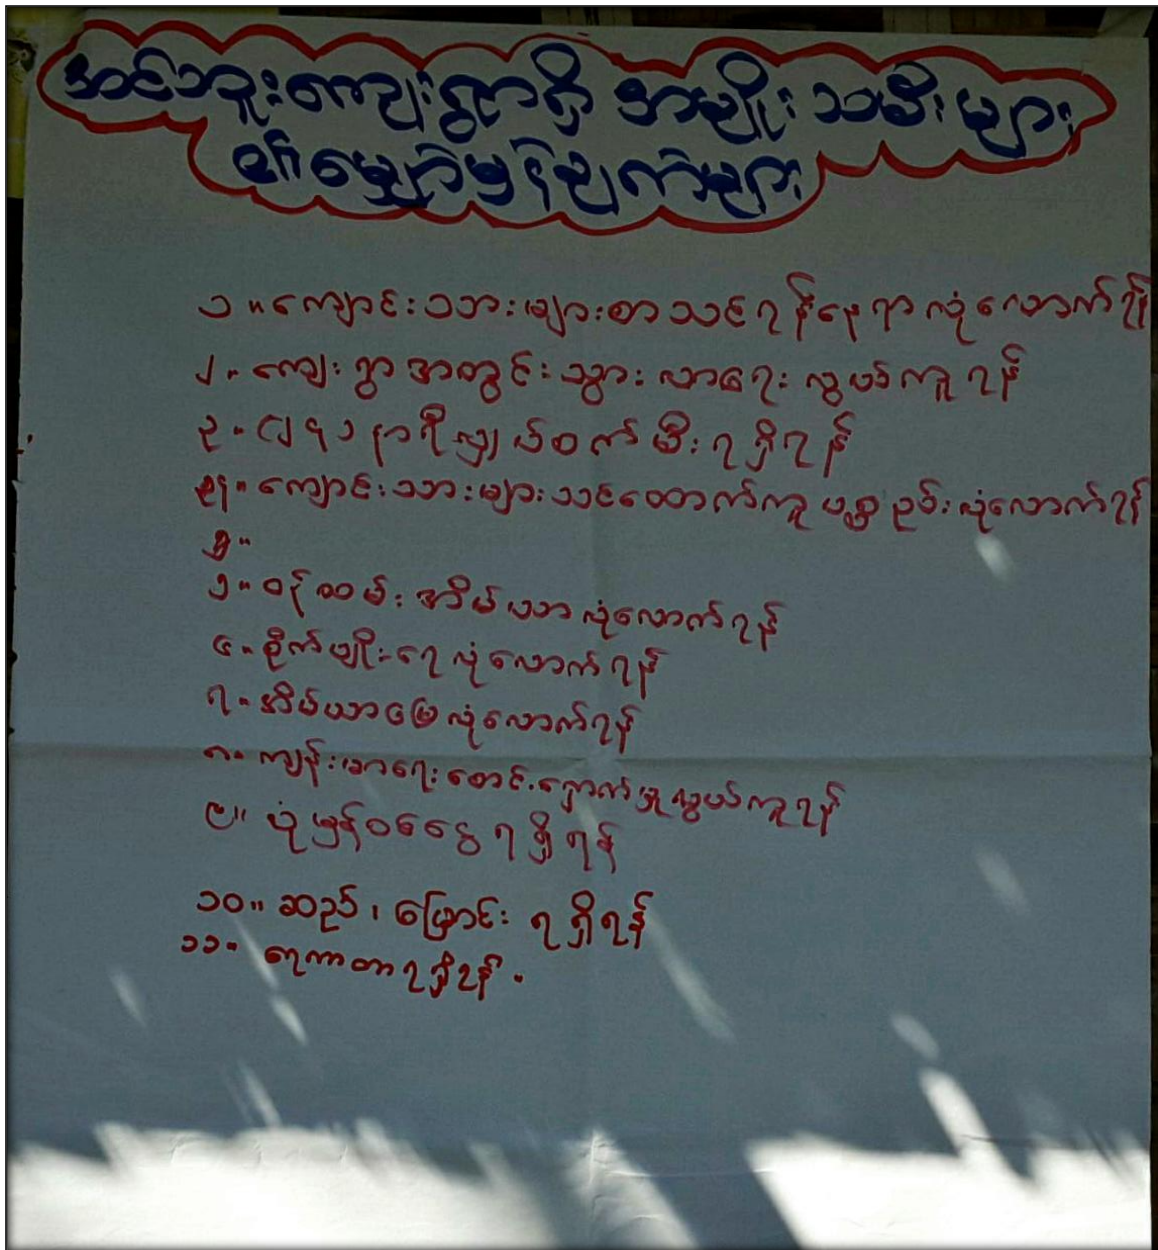 အင်ဘူးကျေးရွာရှိ အမျိုးသမီးများ
၏မျှော်မှန်းချက်များ
၁။ ကျောင်းသားများစာသင်ရန်နေရာလုံလောက်ရန်
၂။ ကျေးရွာအတွင်းသွားလာရေးလွယ်ကူရန်
၃။ ၂၄ နာရီလျှပ်စစ်မီးရရှိရန်
၄။ ကျောင်းသားများသင်ထောက်ကူပစ္စည်းလုံလောက်ရန်
၅။ ဝန်ထမ်းအိမ်ယာလုံလောက်ရန်
၆။ စိုက်ပျိုးရေလုံလောက်ရန်
၇။ အိမ်ယာမြေလုံလောက်ရန်
၈။ ကျန်းမာရေးစောင့်ရှောက်မှုလွယ်ကူရန်
၉။ ပုံမှန်ဝင်ငွေရရှိရန်
၁၀။ ဆည်၊ မြောင်း ရရှိရန်
၁၁။ ရေကာတာရရှိရန်။